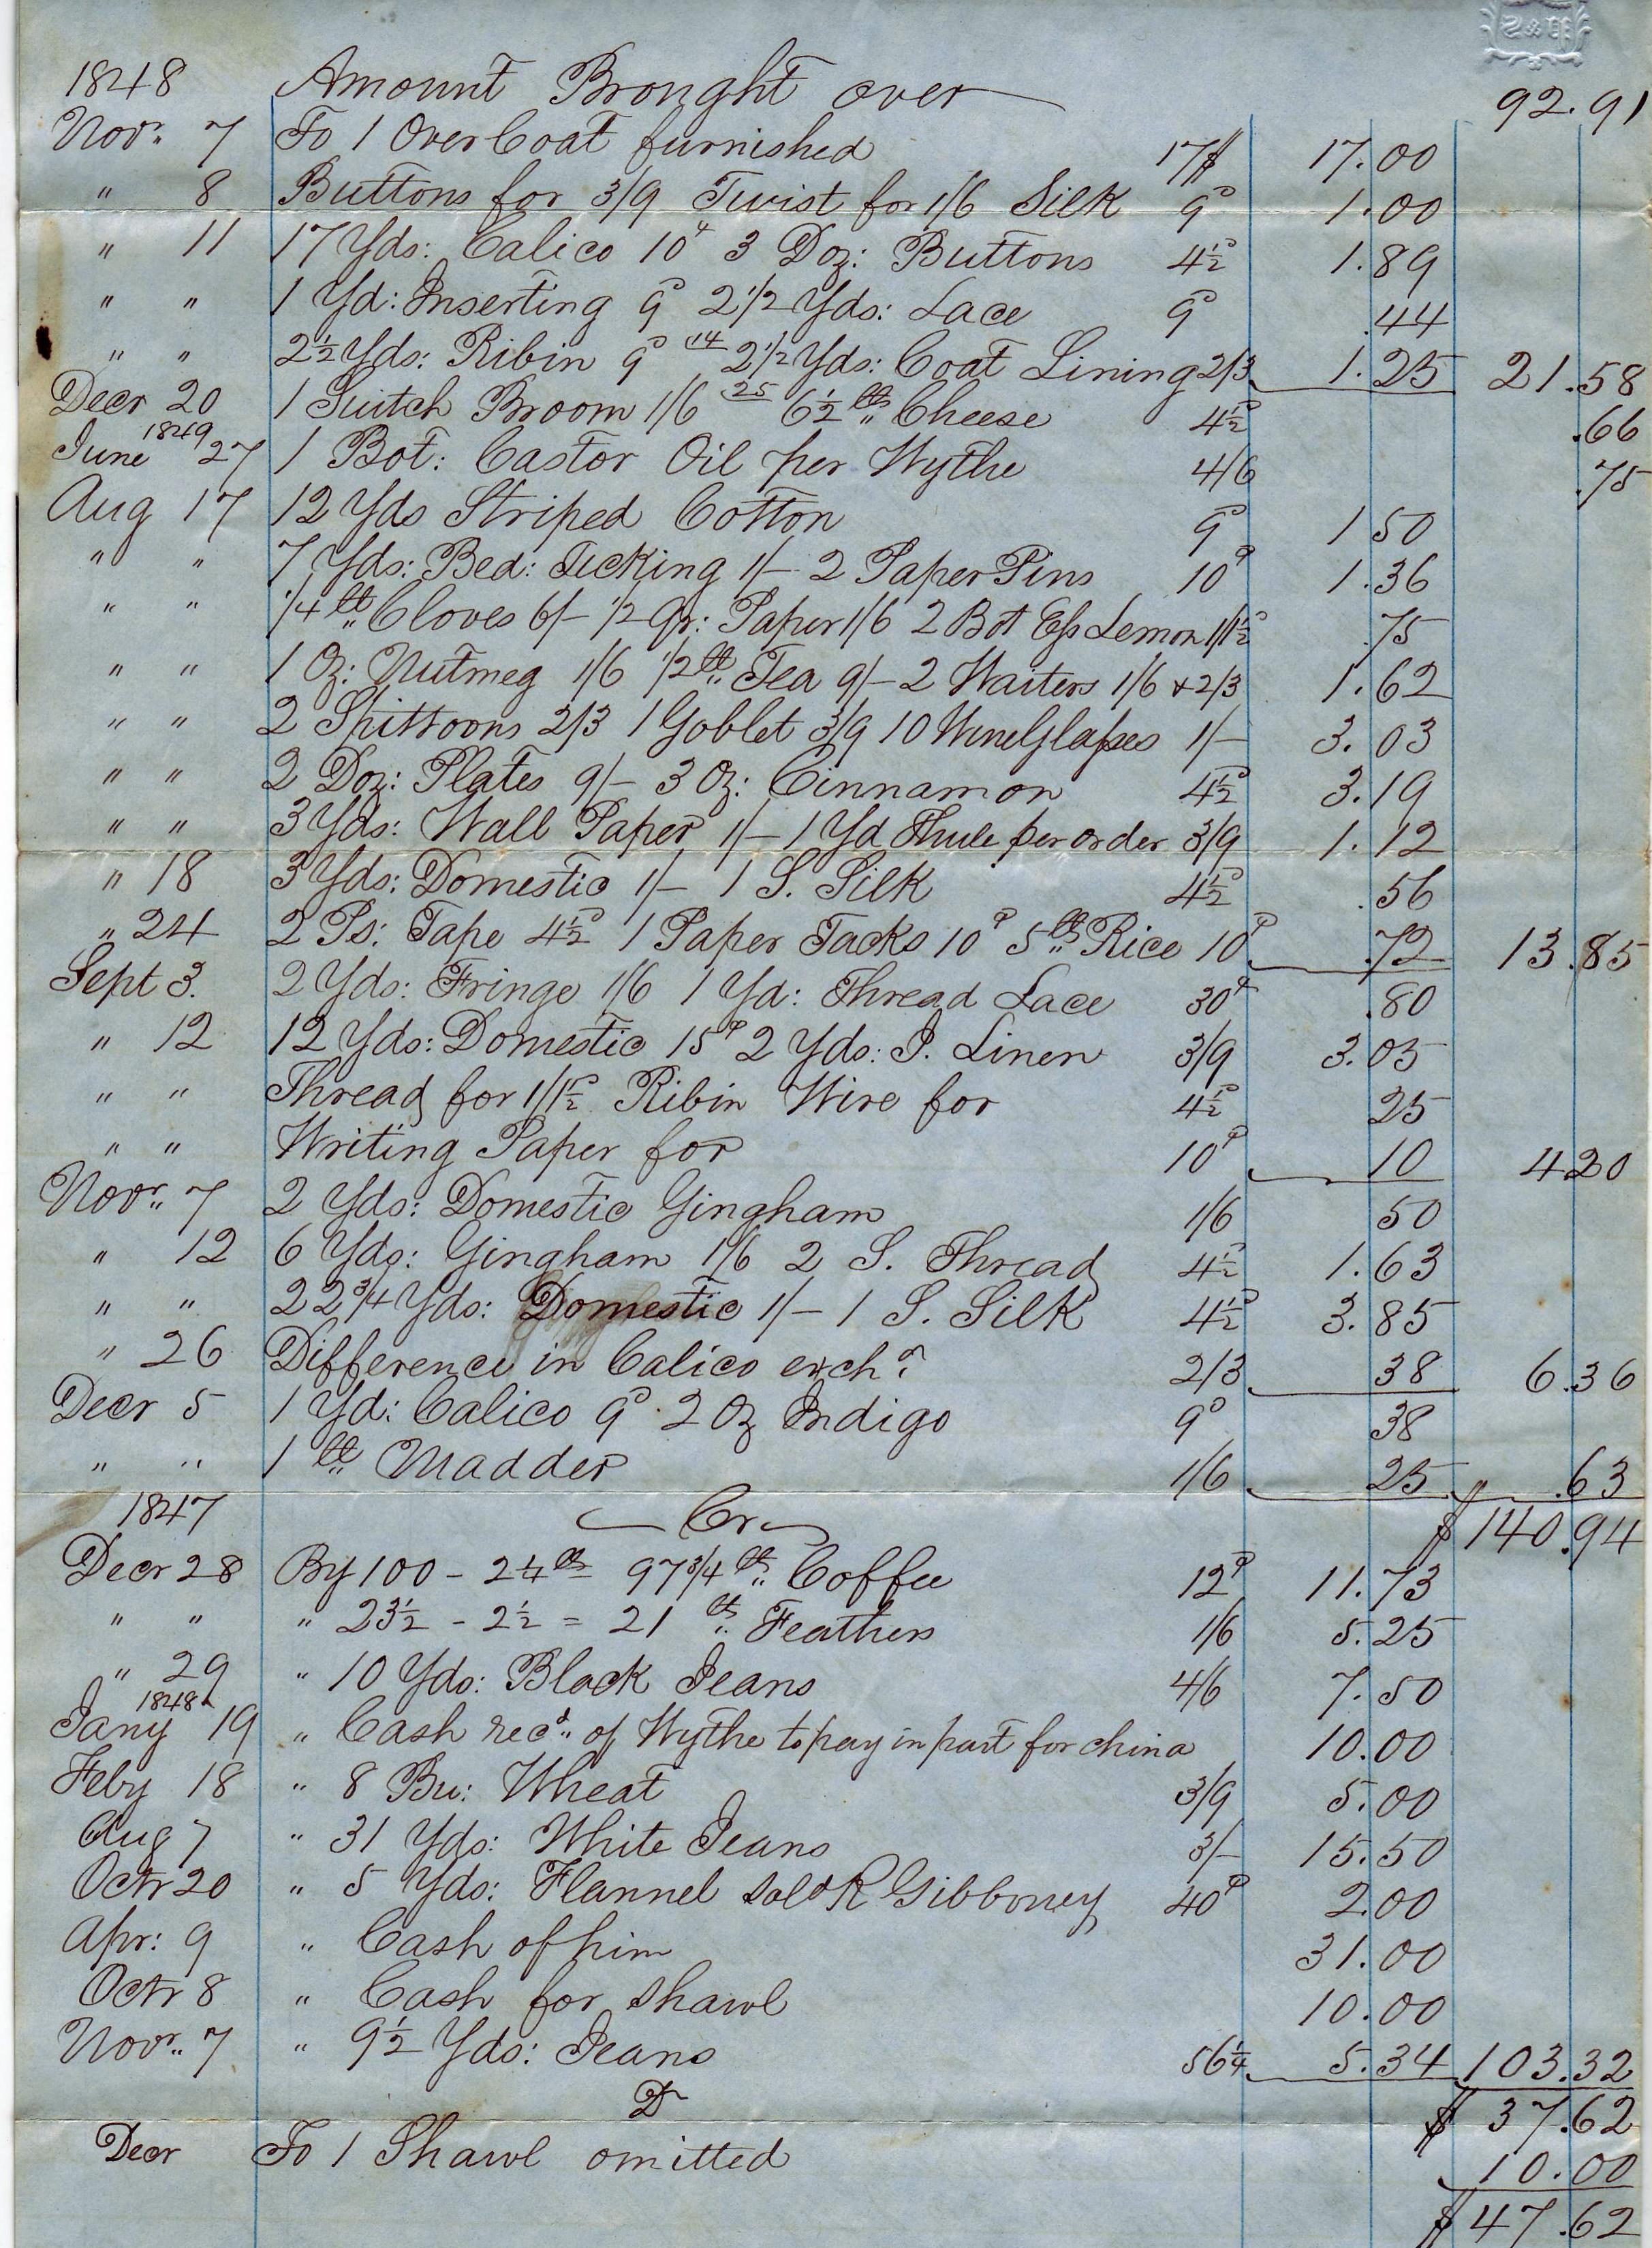 P&S
1848 Amount Brought over 92.91
Novr. 7 To 1 Over Coat furnished 17$ 17.00
" 8 Buttons for 3/9 Twist for 1/6 Silk 9D 1.00
" 11 17 Yds: Calico 10¢ 3 Doz: Buttons 4½D 1.89
" " 1 Yd: Inserting 9D 2 1/2 Yds: Lace 9D .44
" " 2½ Yds: Ribin 9D 14 2 1/2 Yds: Coat Lining 2/3 1.25 21.58
Decr 20 1 Suitch Broom 1/6 25 6½ lbs Cheese 4½D .66
1849
June 27 1 Bot: Castor Oil per Wythe 4/6 .75
Aug 17 12 Yds Striped Cotton 9D 1 50
" " 7 Yds: Bed: Ticking 1/- 2 Paper Pins 10¢ 1.36
" " 1/4 lb Cloves 6/- 1/2 Qr: Paper 1/6 2 Bot Ess Lemon 1/1½D .75
" " 1 Oz: Nutmeg 1/6 1/2 lb Tea 9/- 2 Waiters 1/6 & 2/3 1.62
" " 2 Spittoons 2/3 1 Goblet 3/9 10 Wine Glasses 1/- 3.03
" " 2 Doz: Plates 9/- 3 Oz: Cinnamon 4½D 3.19
" " 3 Yds: Wall Paper 1/- 1 Yd Thule per order 3/9 1.12
" 18 3 Yds: Domestic 1/- 1 S. Silk 4½D .56
" 24 2 Ps: Tape 4½D 1 Paper Tacks 10¢ 5 lbs Rice 10¢ .72 13.85
Sept 3. 2 Yds: Fringe 1/6 1 Yd: Thread Lace 30¢ .80
" 12 12 Yds: Domestic 15¢ 2 Yds: I. Linen 3/9 3.05
" " Thread for 1/1½D Ribin Wire for 4½D 25
" " Writing Paper for 10¢ 10 4.20
Novr. 7 2 Yds: Domestic Gingham 1/6 50
" 12 6 Yds: Gingham 1/6 2 S. Thread 4½D 1.63
" " 22 3/4 Yds: Domestic 1/- 1 S. Silk 4½D 3.85
" 26 Difference in Calico exchd. 2/3 38 6.36
Decr 5 1 Yd: Calico 9D. 2 Oz Indigo 9D 38
" " 1 lb Madder 1/6 25 .63
1847 Cr $140.94
Decr 28 By 100 - 2¼ lbs = 97 3/4 lbs Coffee 12¢ 11.73
" " " 23½ - 2½ = 21 lbs Feathers 1/6 5.25
" 29 " 10 Yds: Black Jeans 4/6 7.50
1848
Jany 19 " Cash recd. of Wythe to pay in part for china 10.00
Feby 18 " 8 Bu: Wheat 3/9 5.00
Aug 7 " 31 Yds: White Jeans 3/- 15.50
Octr 20 " 5 Yds: Flannel sold R Gibboney 40¢ 2.00
Apr: 9 " Cash of him 31.00
Octr 8 " Cash for shawl 10.00
Novr. 7 " 9½ Yds: Jeans 56¼ 5.34 103.32
Dr $ 37.62
Decr To 1 Shawl omitted 10.00
$ 47.62